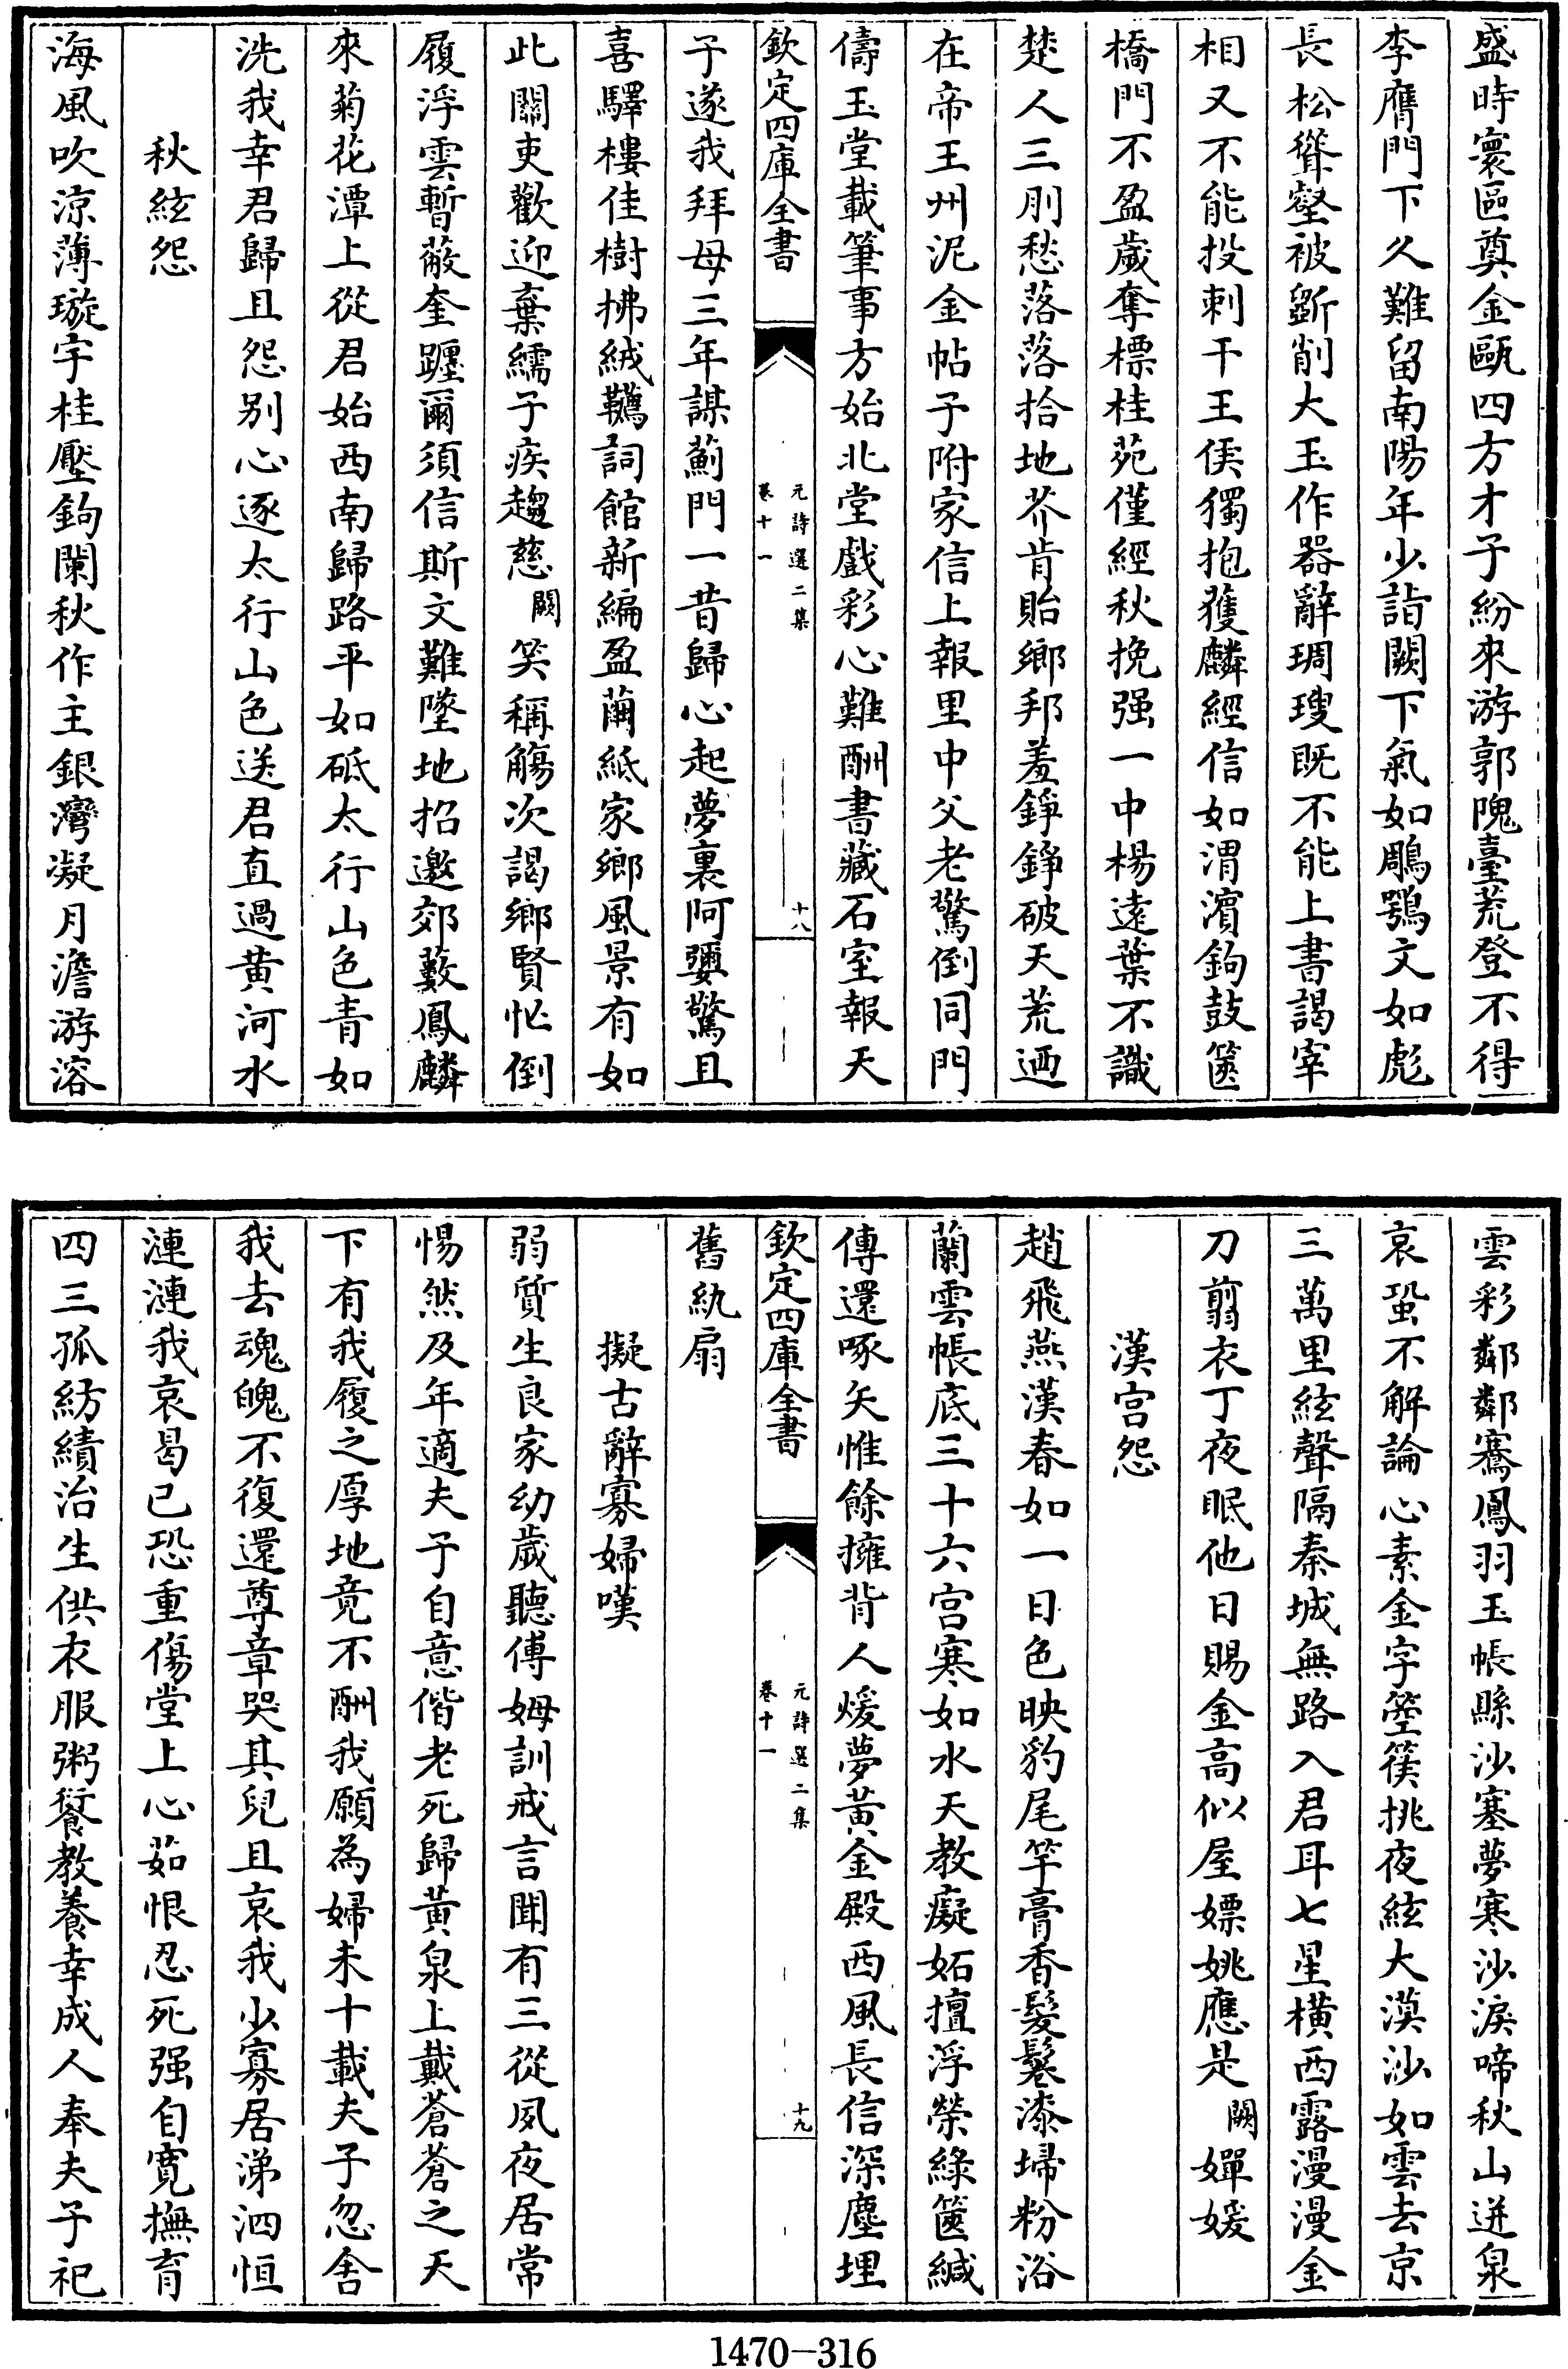 盛時寰區奠金甌四方才子紛來游郭隗臺荒登不得
李膺門下久難留南陽年少詣闕下氣如鵰鶚文如彪
長松聳壑被斲削大玉作器辭琱㻐既不能上書謁宰
相又不能投刺干王侯獨抱獲麟經信如渭濱鉤鼓篋
橋門不盈歲奪標桂苑僅經秋挽强一中楊遠葉不識
楚人三刖愁落落拾地芥肯貽鄉邦羞錚錚破天荒迺
在帝王州泥金帖子附家信上報里中父老驚倒同門
儔玉堂載筆事方始北堂戲彩心難酬書藏石室報天
欽定四庫全書
元詩選二集
卷十一
十八
子遂我拜母三年謀薊門一昔歸心起夢裏阿㜷驚且
喜驛樓佳樹拂絨韉詞館新編盈繭紙家鄉風景有如
此關吏歡迎棄繻子疾趨慈闕笑稱觴次謁鄉賢忙倒
履浮雲暫蔽奎躔爾須信斯文難墜地招邀郊藪鳳麟
來菊花潭上從君始西南歸路平如砥太行山色青如
洗我幸君歸且怨别心逐太行山色送君直過黄河水
秋絃怨
海風吹涼薄璇宇桂壓鉤闌秋作主銀灣凝月澹游溶
雲彩鄰鄰騫鳳羽玉帳縣沙塞夢寒沙淚啼秋山迸泉
哀蛩不解論心素金字箜篌挑夜絃大漠沙如雲去京
三萬里絃聲隔秦城無路入君耳七星橫西露漫漫金
刀翦衣丁夜眠他日賜金高似屋嫖姚應是闕嬋媛
漢宫怨
趙飛燕漢春如一日色映豹尾竿膏香髮鬈漆埽粉浴
蘭雲帳底三十六宫寒如水天教癡妬擅浮榮綠篋緘
傳還啄矢惟餘擁背人煖夢黄金殿西風長信深塵埋
欽定四庫全書
元詩選二集
卷十一
十九
舊紈扇
擬古辭寡婦嘆
弱質生良家幼歲聽傅姆訓戒言聞有三從夙夜居常
惕然及年適夫子自意偕老死歸黄泉上戴蒼蒼之天
下有我履之厚地竟不酬我願為婦未十載夫子忽舍
我去魂魄不復還尊章哭其兒且哀我少寡居涕泗恒
漣漣我哀曷已恐重傷堂上心茹恨忍死强自寛撫育
四三孤紡績治生供衣服粥饔教養幸成人奉夫子祀
1470-316